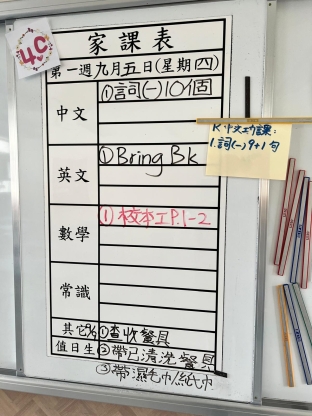 4C
家課表
第一週九月五日(星期四)
中文 ①詞(一)10個
英文 ①Bring Bk
數學 ①校本工P.1-2
常識
其它 ①查收餐具
值日生 ②帶已清洗餐具
③帶濕毛巾/紙巾
中文功課:
1.詞(一)9+1句